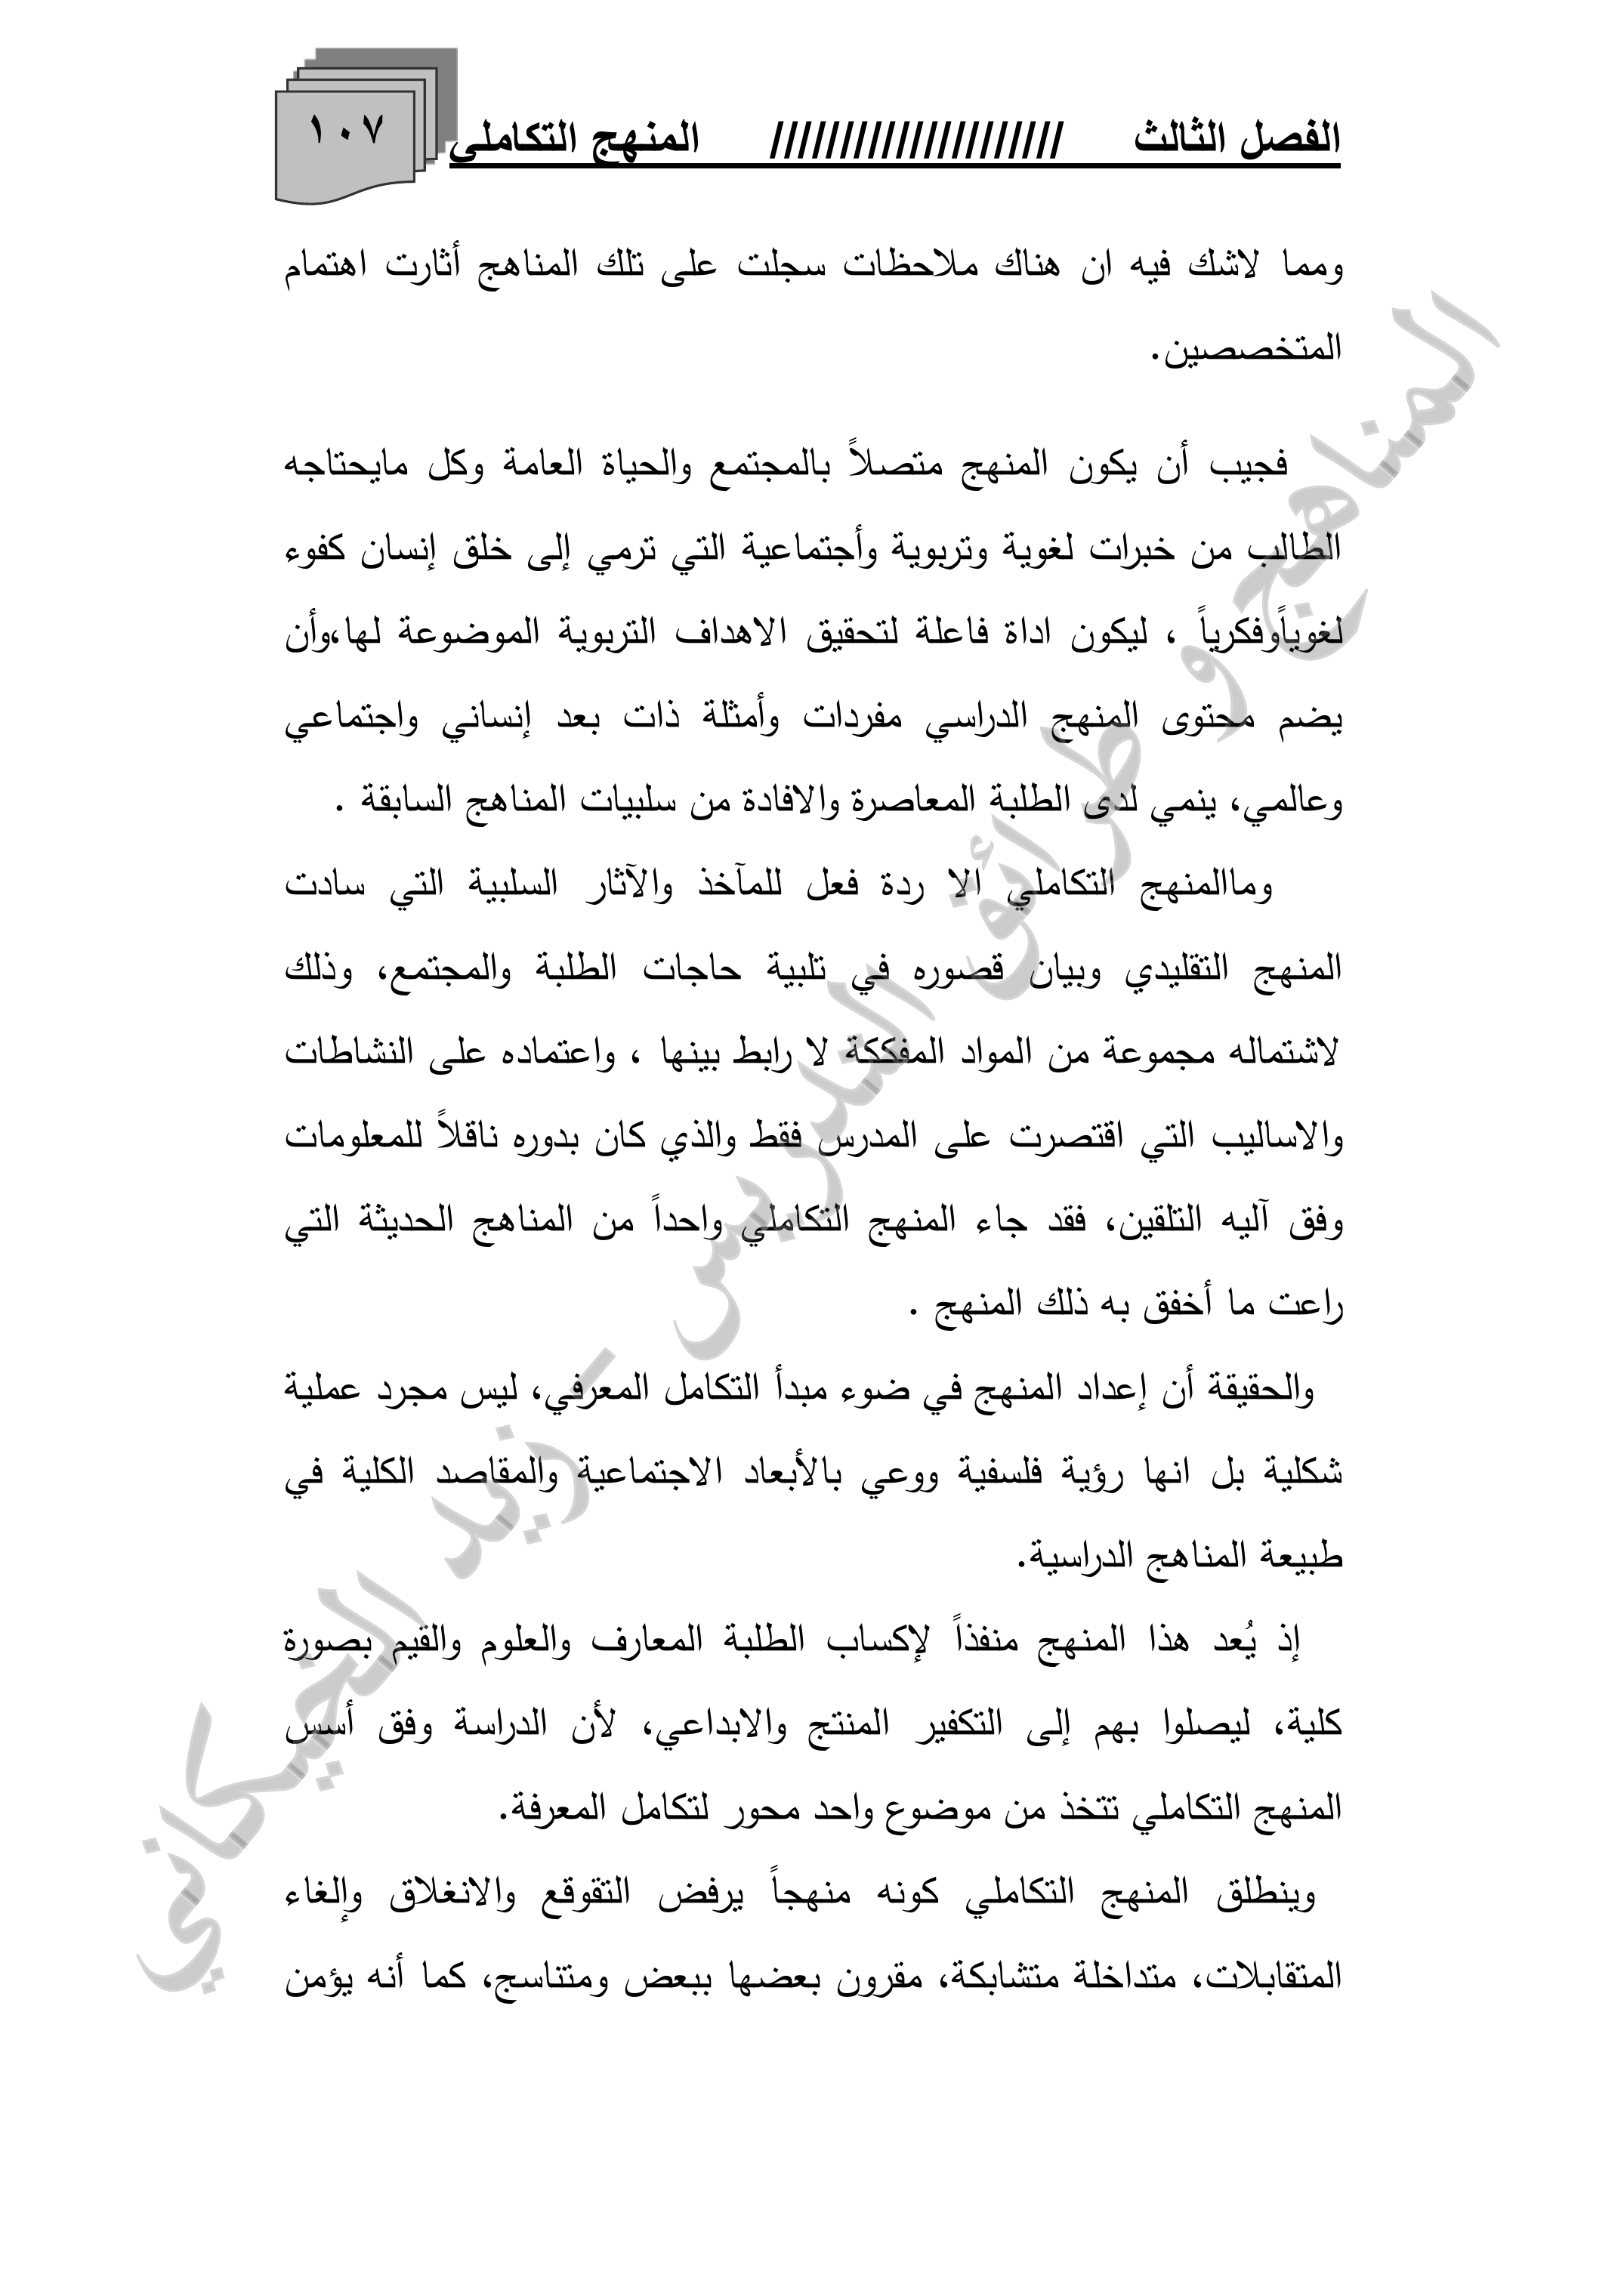 الفصل الثالث ///////////////////// المنهج التكاملي
١٠٧
ومما لاشك فيه ان هناك ملاحظات سجلت على تلك المناهج أثارت اهتمام
المتخصصين.
فجيب أن يكون المنهج متصلاً بالمجتمع والحياة العامة وكل مايحتاجه
الطالب من خبرات لغوية وتربوية وأجتماعية التي ترمي إلى خلق إنسان كفوء
لغوياًوفكرياً ، ليكون اداة فاعلة لتحقيق الاهداف التربوية الموضوعة لها،وأن
يضم محتوى المنهج الدراسي مفردات وأمثلة ذات بعد إنساني واجتماعي
وعالمي، ينمي لدى الطلبة المعاصرة والافادة من سلبيات المناهج السابقة .
وماالمنهج التكاملي الا ردة فعل للمآخذ والآثار السلبية التي سادت
المنهج التقليدي وبيان قصوره في تلبية حاجات الطلبة والمجتمع، وذلك
لاشتماله مجموعة من المواد المفككة لا رابط بينها ، واعتماده على النشاطات
والاساليب التي اقتصرت على المدرس فقط والذي كان بدوره ناقلاً للمعلومات
وفق آليه التلقين، فقد جاء المنهج التكاملي واحداً من المناهج الحديثة التي
راعت ما أخفق به ذلك المنهج .
والحقيقة أن إعداد المنهج في ضوء مبدأ التكامل المعرفي، ليس مجرد عملية
شكلية بل انها رؤية فلسفية ووعي بالأبعاد الاجتماعية والمقاصد الكلية في
طبيعة المناهج الدراسية.
إذ يُعد هذا المنهج منفذاً لإكساب الطلبة المعارف والعلوم والقيم بصورة
كلية، ليصلوا بهم إلى التكفير المنتج والابداعي، لأن الدراسة وفق أسس
المنهج التكاملي تتخذ من موضوع واحد محور لتكامل المعرفة.
وينطلق المنهج التكاملي كونه منهجاً يرفض التقوقع والانغلاق وإلغاء
المتقابلات، متداخلة متشابكة، مقرون بعضها ببعض ومتناسج، كما أنه يؤمن
المناهج و طرائق التدريس - زيد الخيكاني